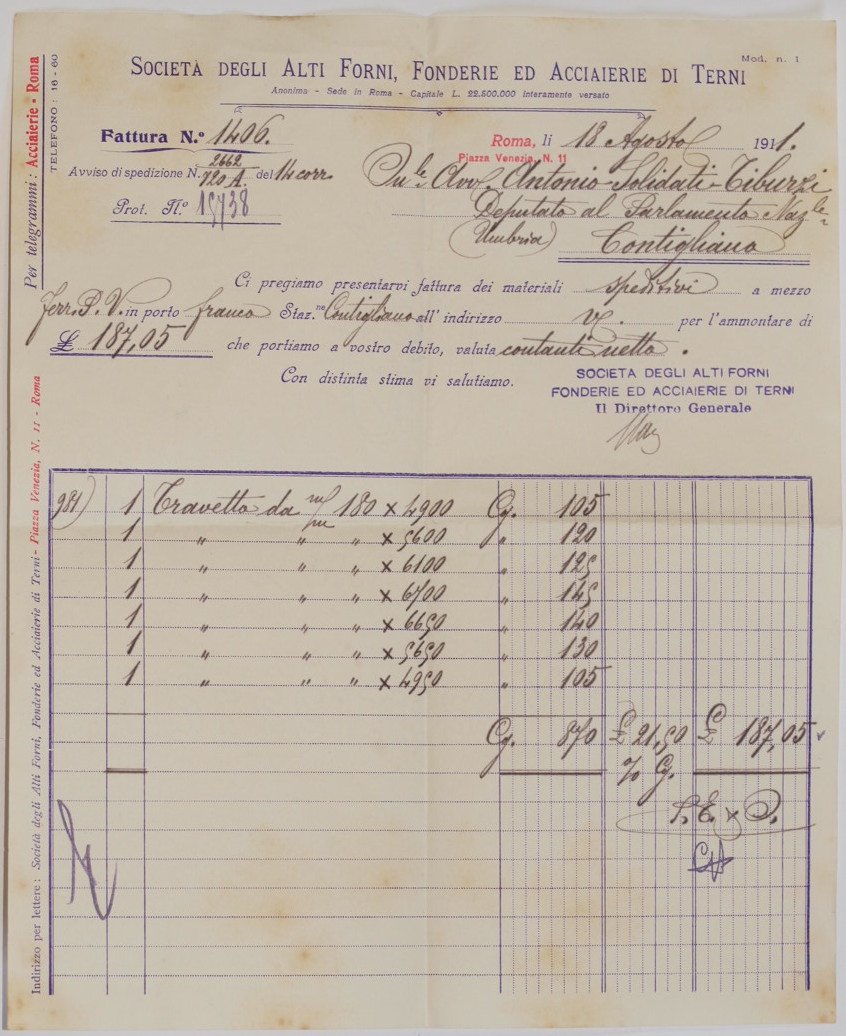 Mod. n. 1
SOCIETÀ DEGLI ALTI FORNI, FONDERIE ED ACCIAIERIE DI TERNI
Anonima - Sede in Roma - Capitale L. 22.500.000 interamente versato
Per telegrammi: Acciaierie - Roma
TELEFONO: 16-60
Fattura N.º 1406.
Roma, li 18 Agosto 1911.
Piazza Venezia, N. 11
Avviso di spedizione N. 2662/720 A. del 14 corr.
On.le Avv. Antonio Solidati-Tiburzi
Prot. N.º 15738
Deputato al Parlamento Naz.le
(Umbria) Contigliano
Ci pregiamo presentarvi fattura dei materiali speditivi a mezzo
Ferr. P. V. in porto franco Staz.ne Contigliano all' indirizzo V/. per l'ammontare di
£ 187,05 che portiamo a vostro debito, valuta contanti netto.
Con distinta stima vi salutiamo.
SOCIETA DEGLI ALTI FORNI
FONDERIE ED ACCIAIERIE DI TERNI
Il Direttore Generale
981) 1 Travetto da 180 × 4900 Cg. 105
1 " " " × 5600 " 120
1 " " " × 6100 " 125
1 " " " × 6700 " 145
1 " " " × 6650 " 140
1 " " " × 5650 " 130
1 " " " × 4950 " 105
Cg. 870 £ 21,50 £ 187,05
% Cg.
S. E. & O.
Indirizzo per lettere: Società degli Alti Forni, Fonderie ed Acciaierie di Terni - Piazza Venezia, N. 11 - Roma